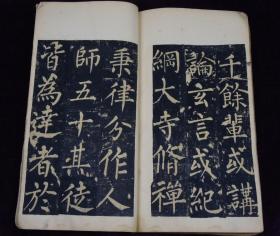 千餘輩或講
論玄言或紀
綱大寺脩禪
秉律分作人
師五十其徒
皆為達者於